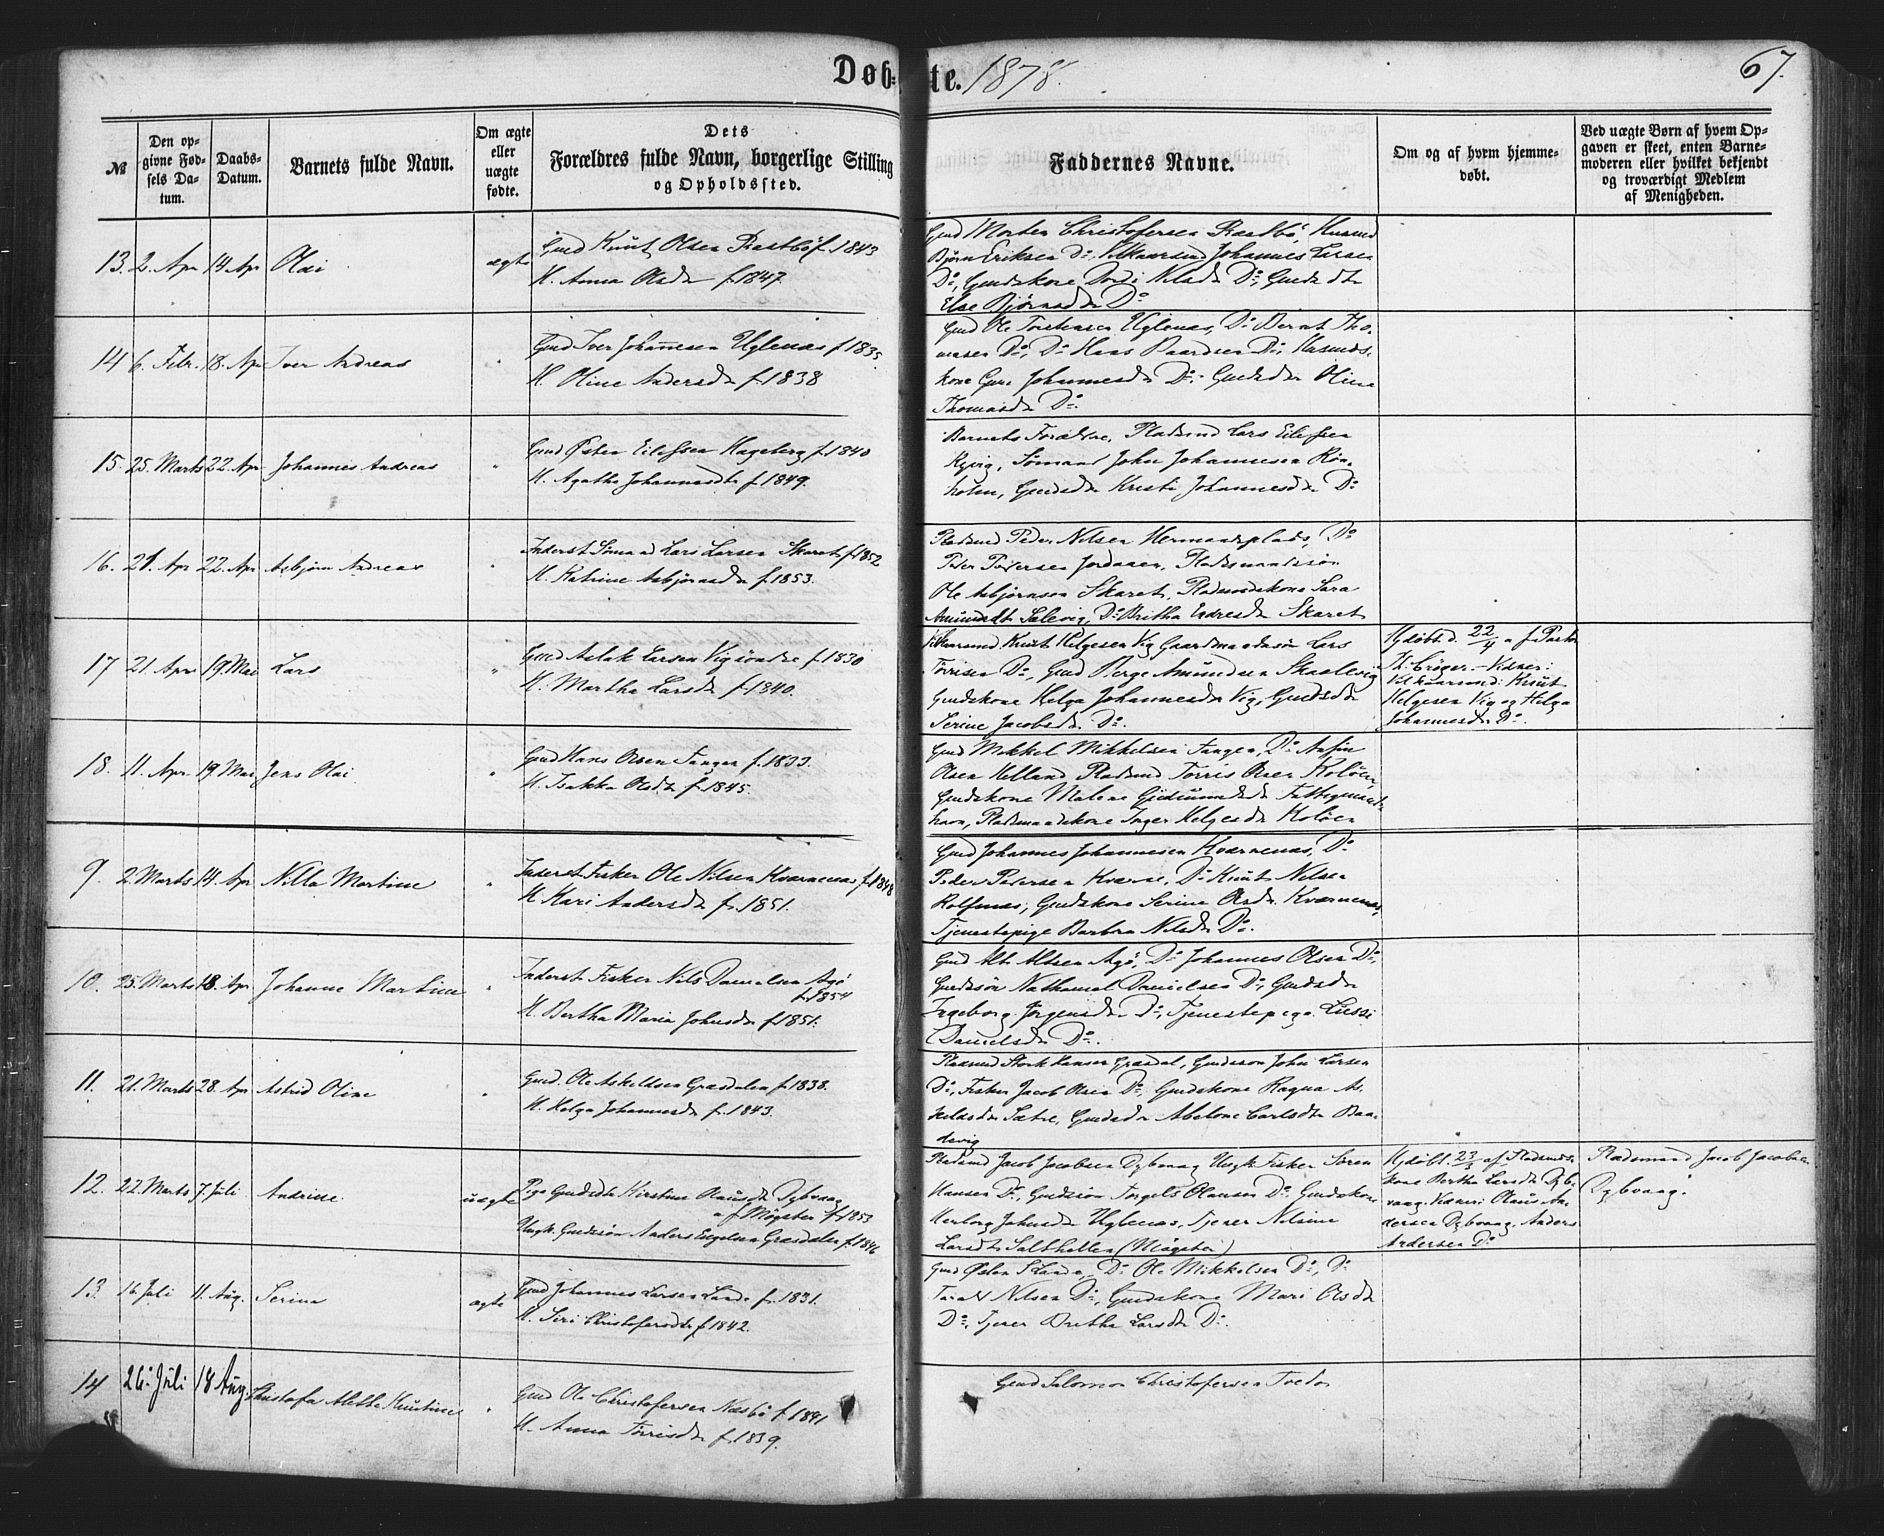 Døb-te. 1878.
67.
№
Den opgivne Fødsels Datum.
Daabs-Datum.
Barnets fulde Navn.
Om ægte eller uægte fødte.
Dets Forældres fulde Navn, borgerlige Stilling og Opholdssted.
Faddernes Navne.
Om og af hvem hjemmedøbt.
Ved uægte Børn af hvem Opgaven er skeet, enten Barnemoderen eller hvilket bekjendt og troværdigt Medlem af Menigheden.
13. 2. Apr 14 Apr Olai ægte Gmd Knut Olsen Rastbø f. 1843
H. Anna Olsdtr f. 1847.
Gmd Morten Christofersen Rastbø, Husmd
Bjørn Eriksen Do. Johannes Larsen
Do, Gmdskone Nilsdtr Do, Gmdsdtr
Else Bjørnsdtr Do
14 6. Febr. 18. Apr Iver Andreas " Gmd Iver Johannesen Uglenæs f 1835.
H. Oline Andersdtr f. 1838
Gmd Ole Torstensen Uglenæs, Do Bernt Tho-
masen Do, Do Hans Do, Husmds-
kone Johannesdtr Do, Gmdsdtr Oline
Thomasdtr Do.
15. 25. Marts 22. Apr Johannes Andreas " Gmd Østen Eilefsen Hageberg f. 1840
H. Agatha Johannesdtr f. 1849.
Barnets Forældre, Pladsmd Lars Eilefsen
Sømand John Johannesen Røn-
holm, Gmdsdtr Kristi Johannesdtr Do
16. 21. Apr 22. Apr Asbjørn Andreas " Inderst Sømand Lars Larsen Skaret f. 1852
H. Katrine Asbjørnsdtr f. 1853.
Pladsmd Peder Nilsen Hermansplads, Do
Peder Pedersen Jordaaen, Pladsmandssøn
Ole Asbjørnsen Skaret, Pladsmandskone Sara
Amundsdtr Selevig, Do Britha Endresdtr Skaret
17 21. Apr 19. Mai Lars " Gmd Aslak Larsen Vig f. 1830
H. Martha Larsdtr f. 1840.
Knut Helgesen Vig Gaardmandssøn Lars
Torrisen Do, Gmd Berge Amundsen Skaalevig
Gmdskone Helga Johannesdtr Vig, Gmdsdtr
Serine Jacobsdtr Do.
Hjdøbt d. 22/4 af
Krøger – Vidner:
Knut
Helgesen Vig og Helga
Johannesdtr Do.
18. 11. Apr. 19. Mai Jens Olai " Gmd Hans Olsen Tangen f. 1833.
H. Isakka Olsdtr f. 1845.
Gmd Mikkel Mikkelsen Tangen, Do
Olsen Helland, Pladsmd Torris Olsen Koløen,
Gmdskone Malene
havn, Pladsmandskone Inger Helgesdtr Koløen
9. 2. Marts 14. Apr Nilla Martine " Inderst Fisker Ole Nilsen Kvarnenæs f. 1848
H. Kari Andersdtr f. 1851.
Gmd Johannes Johannesen Kvarnenæs, Do
Peder Pedersen Kværne, Do Knut Nilsen
Rolfsnæs, Gmdskone Serine Olsdtr Kværnenæs,
Tjenestepige Barbra Nilsdtr Do.
10. 25. Marts 18. Apr. Johanne Martine " Inderst Fisker Nils Danielsen Agø
f. 1854
H. Bertha Maria Johnsdtr f. 1851.
Gmd Alt Altsen Agø, Do Johannes Olsen Do,
Gmdssøn Nathanael Danielsen Do, Gmdsdtr
Ingeborg Jørgensdtr Do, Tjenestepige Lussi
Danielsdtr Do.
11. 21. Marts 28. Apr Astrid Oline " Gmd. Ole Askeldsen Græsdalen f. 1838.
H. Helga Johannesdtr f. 1843.
Pladsmd Hansen Græsdal, Gmdssøn John Larsen
Do, Fisker Jacob Olsen Do, Gmdskone Ragna As-
keldsdtr Sætre, Gmdsdtr Abelone Carlsdtr Baa-
devig
12. 22. Marts 7 Juli Andrine uægte Pige Gmdsdtr Kirstine Olausdtr Dybvaag
af Møgster f. 1853
Ungk. Gmdssøn Anders Engelsen Græsdalen f. 1846
Pladsmd Jacob Jacobsen Dybvaag Ungk. Fisker Søren
Hansen Do, Gmdssøn Torgels Olausen Do Gmdskone
Herborg Johnsdtr Uglenæs, Tjener Nilsine
Larsdtr Salthellen (Møgster)
Hjdøbt 23/3 af Pladsmds-
kone Bertha Larsdtr Dyb-
vaag. Vidner: Olaus An-
dersen Dybvaag, Anders
Andersen Do
Pladsmand Jacob Jacobsen
Dybvaag.
13. 16. Juli 11. Aug. Serina ægte Gmd Johannes Larsen Lande f. 1831.
H. Seri Christofersdtr f. 1842.
Gmd Østen Lande, Do Ole Mikkelsen Do, Do
Nilsen Do, Gmdskone Mari Olsdtr
Do, Tjener Britha Larsdtr Do.
14 26. Juli 18 Aug. Christofa Alethe Knutine " Gmd Ole Christofersen Næsbø f. 1841
H. Anna Torrisdtr f. 1839.
Gmd Salomon Christofersen Tvedten